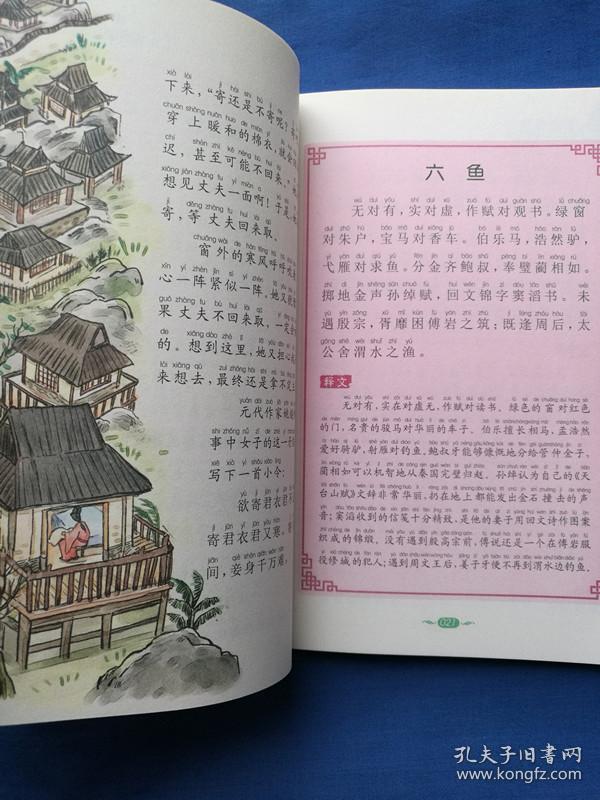 下来，“寄还是不寄呢？
穿上暖和的棉衣，就会
迟，甚至可能不回来。”
想见丈夫一面啊！于是，
寄，等丈夫回来取。
窗外的寒风呼呼
心一阵紧似一阵。她又
果丈夫不回来取，一定会
的。想到这里，她又担心
来想去，最终还是拿不定主
元代作家姚
事中女子的这一
写下一首小令：
欲寄君衣君不
寄君衣君又寒。
间，妾身千万难。
六鱼
无对有，实对虚，作赋对观书。绿窗
对朱户，宝马对香车。伯乐马，浩然驴，
弋雁对求鱼。分金齐鲍叔，奉璧蔺相如。
掷地金声孙绰赋，回文锦字窦滔书。未
遇殷宗，胥靡困傅岩之筑；既逢周后，太
公舍渭水之渔。
释文
无对有，实在对虚无，作赋对读书。绿色的窗对红色
的门，名贵的骏马对华丽的车子。伯乐擅长相马，孟浩然
爱好骑驴，射雁对钓鱼。鲍叔牙能够慷慨地分给管仲金子，
蔺相如可以机智地从秦国完璧归赵。孙绰认为自己的《天
台山赋》文辞非常华丽，扔在地上都能发出金石撞击的声
音；窦滔收到的信笺十分精致，是他的妻子用回文诗作图案
织成的锦缎。没有遇到殷高宗前，傅说还是一个在傅岩服
役修城的犯人；遇到周文王后，姜子牙便不再到渭水边钓鱼。
021
孔夫子旧书网
www.kongfz.com